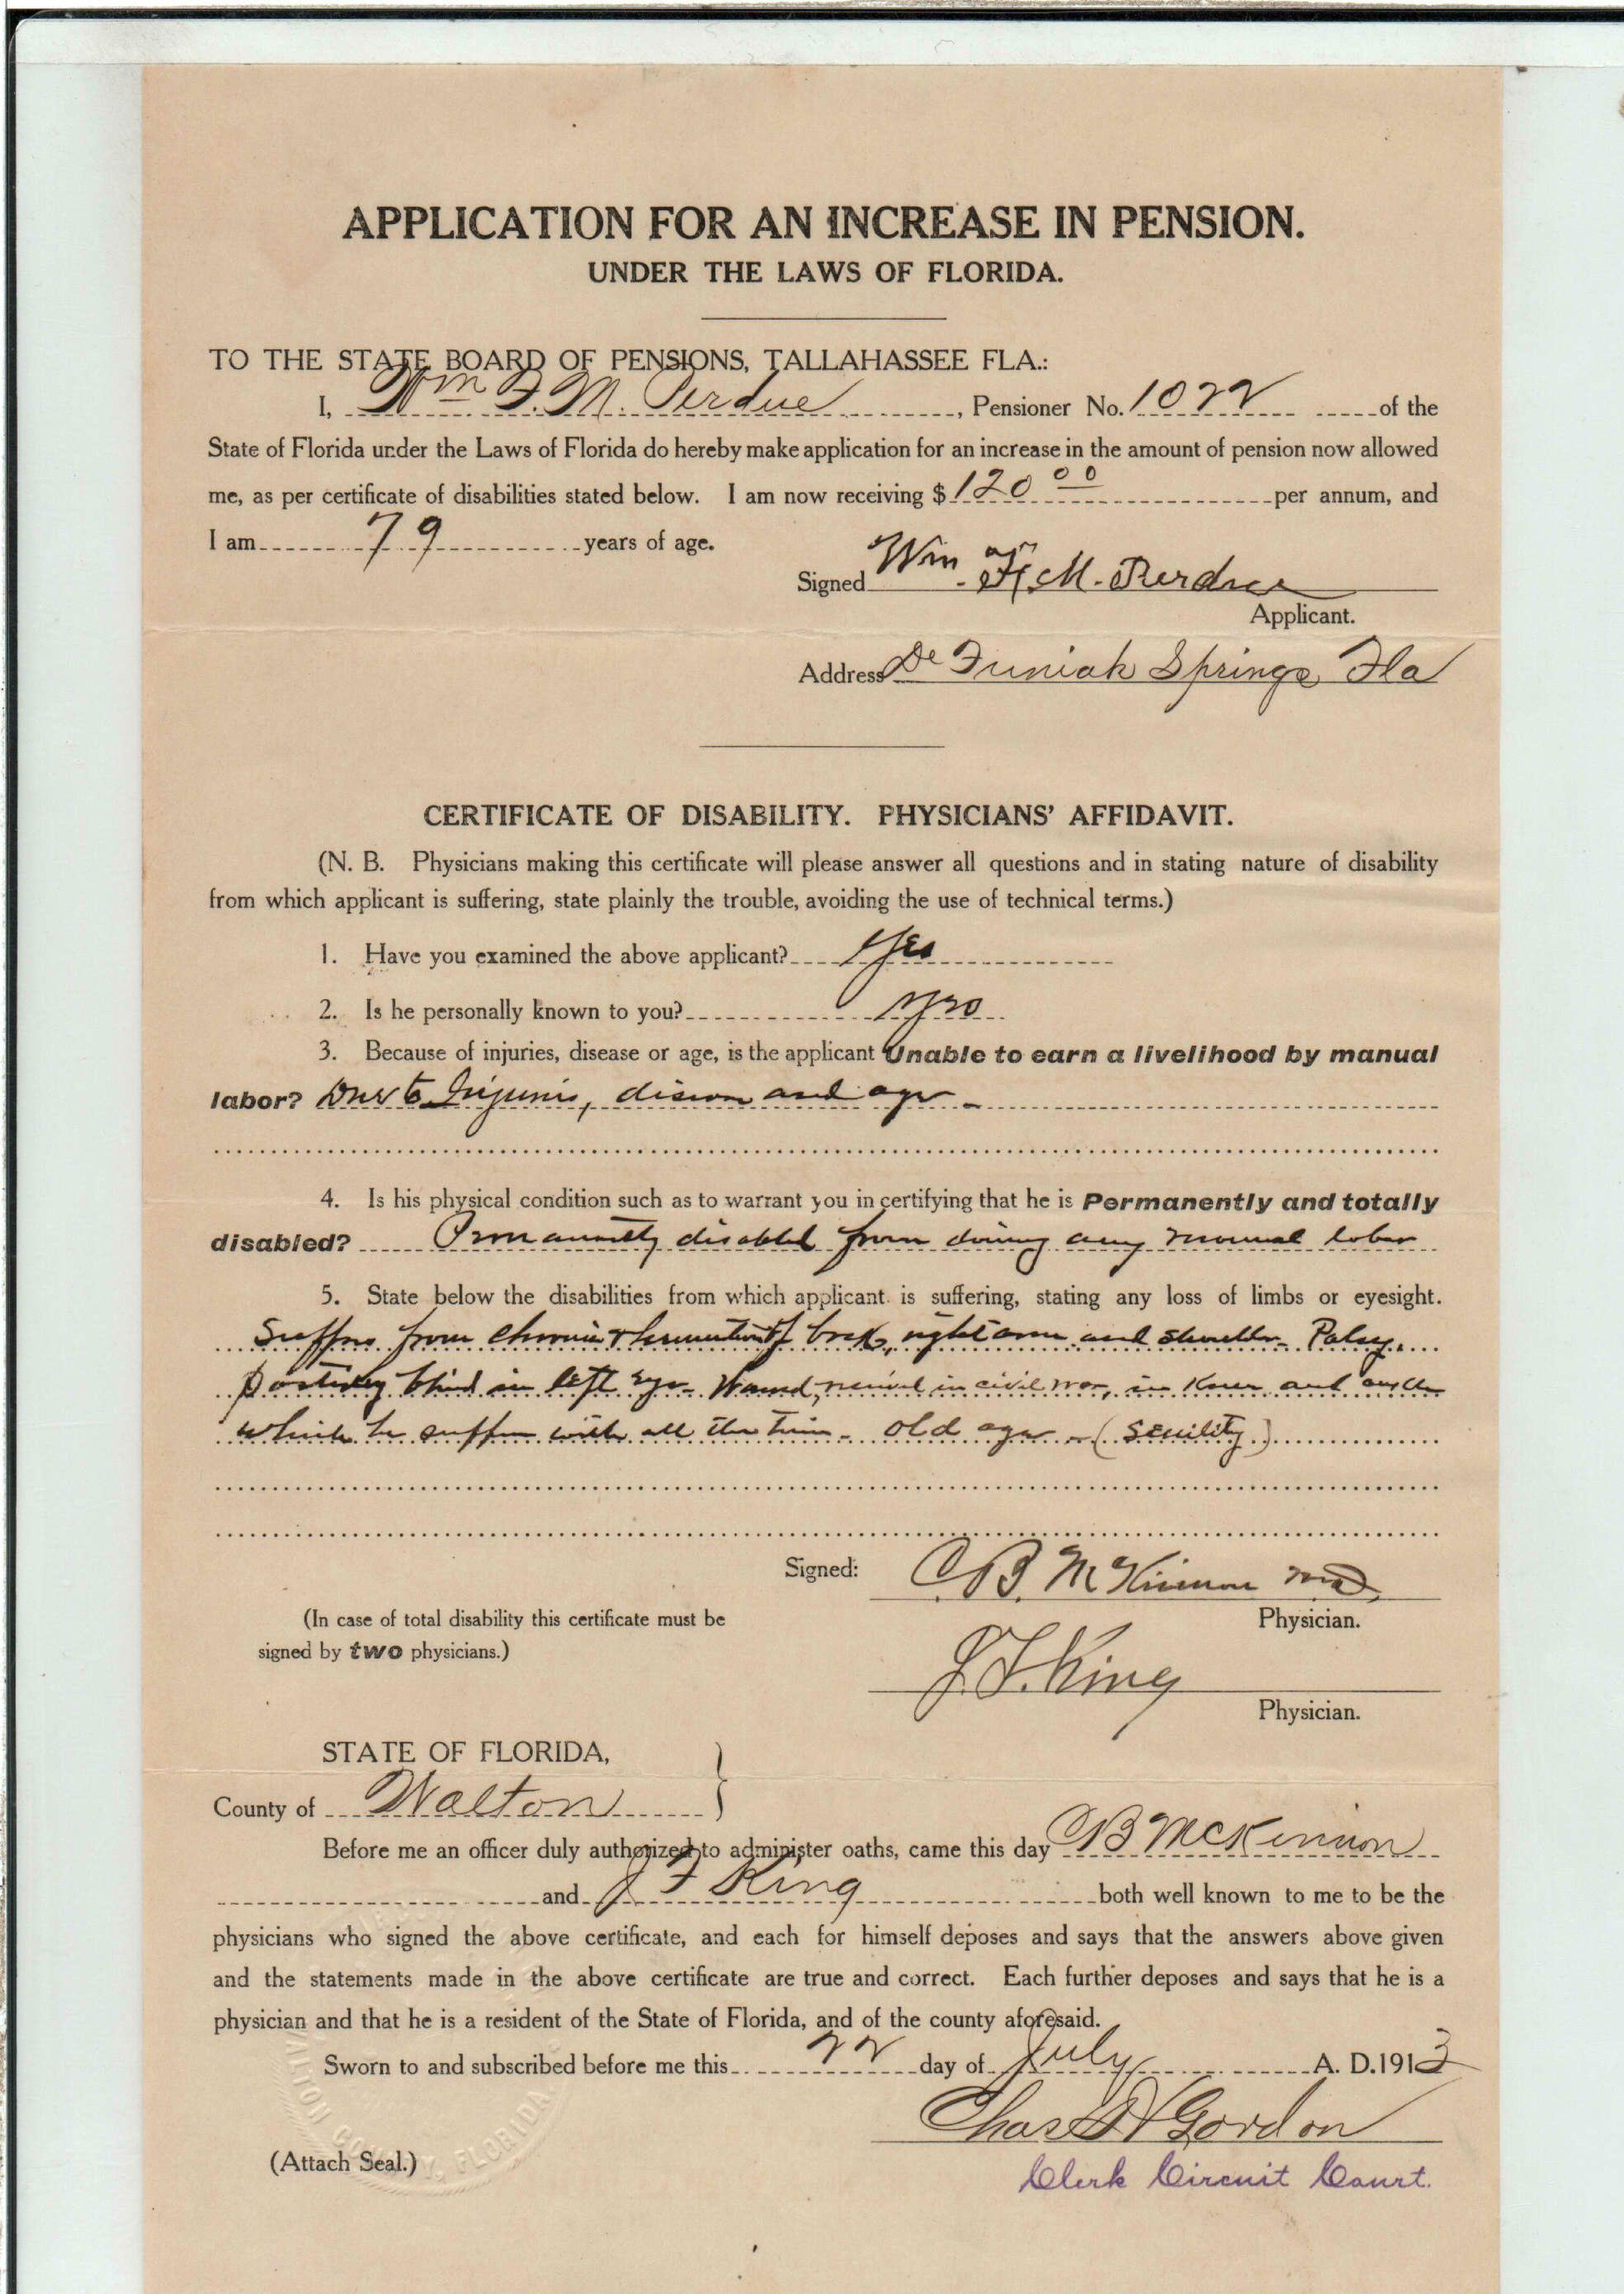 APPLICATION FOR AN INCREASE IN PENSION.
UNDER THE LAWS OF FLORIDA.
TO THE STATE BOARD OF PENSIONS, TALLAHASSEE FLA.:
I, Wm F. M. Perdue, Pensioner No. 1022 of the
State of Florida under the Laws of Florida do hereby make application for an increase in the amount of pension now allowed
me, as per certificate of disabilities stated below. I am now receiving $ 120 00 per annum, and
I am 79 years of age.
Signed Wm F. M. Perdue
Applicant.
Address De Funiak Springs Fla
CERTIFICATE OF DISABILITY. PHYSICIANS' AFFIDAVIT.
(N. B. Physicians making this certificate will please answer all questions and in stating nature of disability
from which applicant is suffering, state plainly the trouble, avoiding the use of technical terms.)
1. Have you examined the above applicant? Yes
2. Is he personally known to you? Yes
3. Because of injuries, disease or age, is the applicant Unable to earn a livelihood by manual
labor? Due to Injuries, disease and age -
4. Is his physical condition such as to warrant you in certifying that he is Permanently and totally
disabled? Permanently disabled from doing any manual labor
5. State below the disabilities from which applicant is suffering, stating any loss of limbs or eyesight.
Suffers from Chronic rheumatism of back, right arm and shoulder - Palsy.
partially blind in left eye - Wound, received in civil war, in knee and
which he suffers with all the time - old age - (Senility)
Signed: C B. McKinnon MD
Physician.
(In case of total disability this certificate must be
signed by two physicians.)
J. F. King
Physician.
STATE OF FLORIDA,
County of Walton }
Before me an officer duly authorized to administer oaths, came this day CB McKinnon
and J F King both well known to me to be the
physicians who signed the above certificate, and each for himself deposes and says that the answers above given
and the statements made in the above certificate are true and correct. Each further deposes and says that he is a
physician and that he is a resident of the State of Florida, and of the county aforesaid.
Sworn to and subscribed before me this 22 day of July A. D. 1913
Chas Gordon
(Attach Seal.)
Clerk Circuit Court.